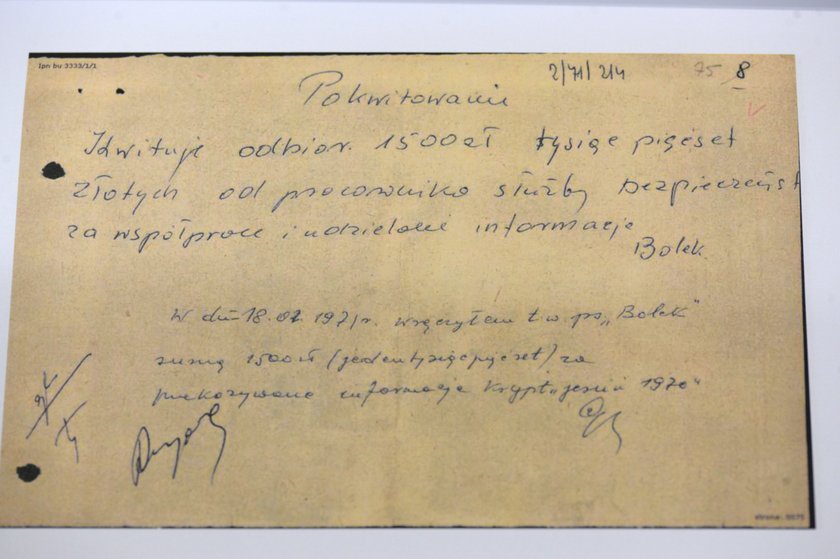 Ipn bu 3333/1/1
2/71/214 75 8
Pokwitowanie
Kwituje odbior. 1500 zł tysiąc pięćset
złotych od pracownika służby bezpieczeńst
za współprace i udzielone informacje
Bolek
W dniu 18.01.1971r. wręczyłem t.w ps „Bolek"
sumę 1500 zł (jeden tysiąc pięćset) za
przekazywane informacje krypt „jesień 1970"